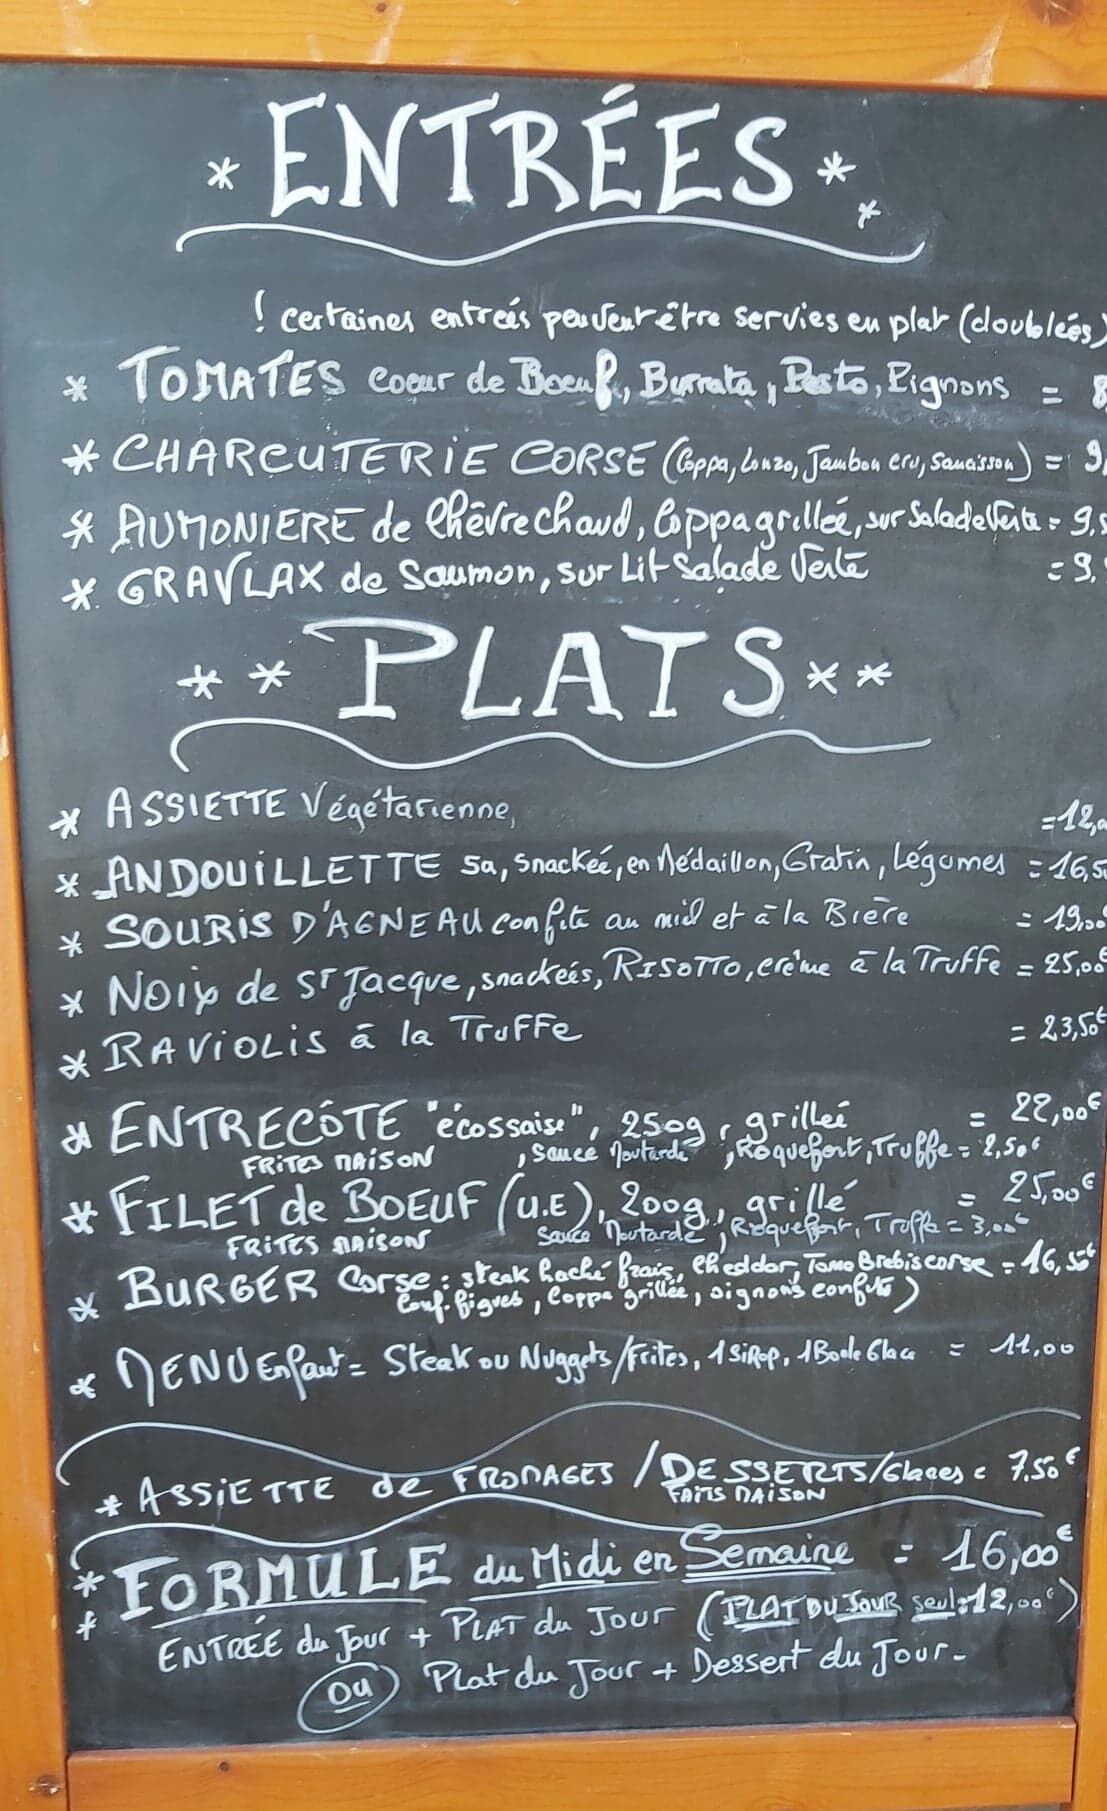 * ENTRÉES *
! Certaines entrées peuvent être servies en plat (doublées)
* TOMATES Coeur de Boeuf, Burrata, Pesto, Pignons = 8
* CHARCUTERIE CORSE (Coppa, Lonzo, Jambon cru, Saucisson) = 9,
* AUMONIERE de Chêvre chaud, Coppa grillée, sur Salade Verte = 9,5
* GRAVLAX de Saumon, sur Lit Salade Verte = 9,
** PLATS **
* ASSIETTE Végétarienne, =12,0
* ANDOUILLETTE 5a, Snackée, en Médaillon, Gratin, Légumes = 16,50
* SOURIS D'AGNEAU confite au miel et à la Bière = 19,00
* NOIX de ST Jacque, snackées, RISOTTO, crème à la Truffe = 25,00€
* RAVIOLIS à la TRUFFE = 23,50€
* ENTRECÔTE "écossaise", 250g, grilleé = 22,00€
FRITES MAISON , Sauce Moutarde, Roquefort, Truffe = 2,50€
* FILET de BOEUF (U.E), 200g, grillé = 25,00€
FRITES MAISON Sauce Moutarde, Roquefort, Truffe = 3,00€
* BURGER Corse: steak haché frais, Cheddar, Tome Brebis corse = 16,50€
Conf. figues, Coppa grillée, oignons confits)
* MENU Enfant = Steak ou Nuggets/Frites, 1 SiRop, 1 Boule Glace = 11,00
* ASSIETTE de FROMAGES / DESSERTS/Glaces = 7,50€
FAITS MAISON
* FORMULE du Midi en Semaine = 16,00€
* ENTRÉE du Jour + PLAT du Jour (PLAT DU JOUR seul: 12,00€)
OU Plat du Jour + Dessert du Jour.